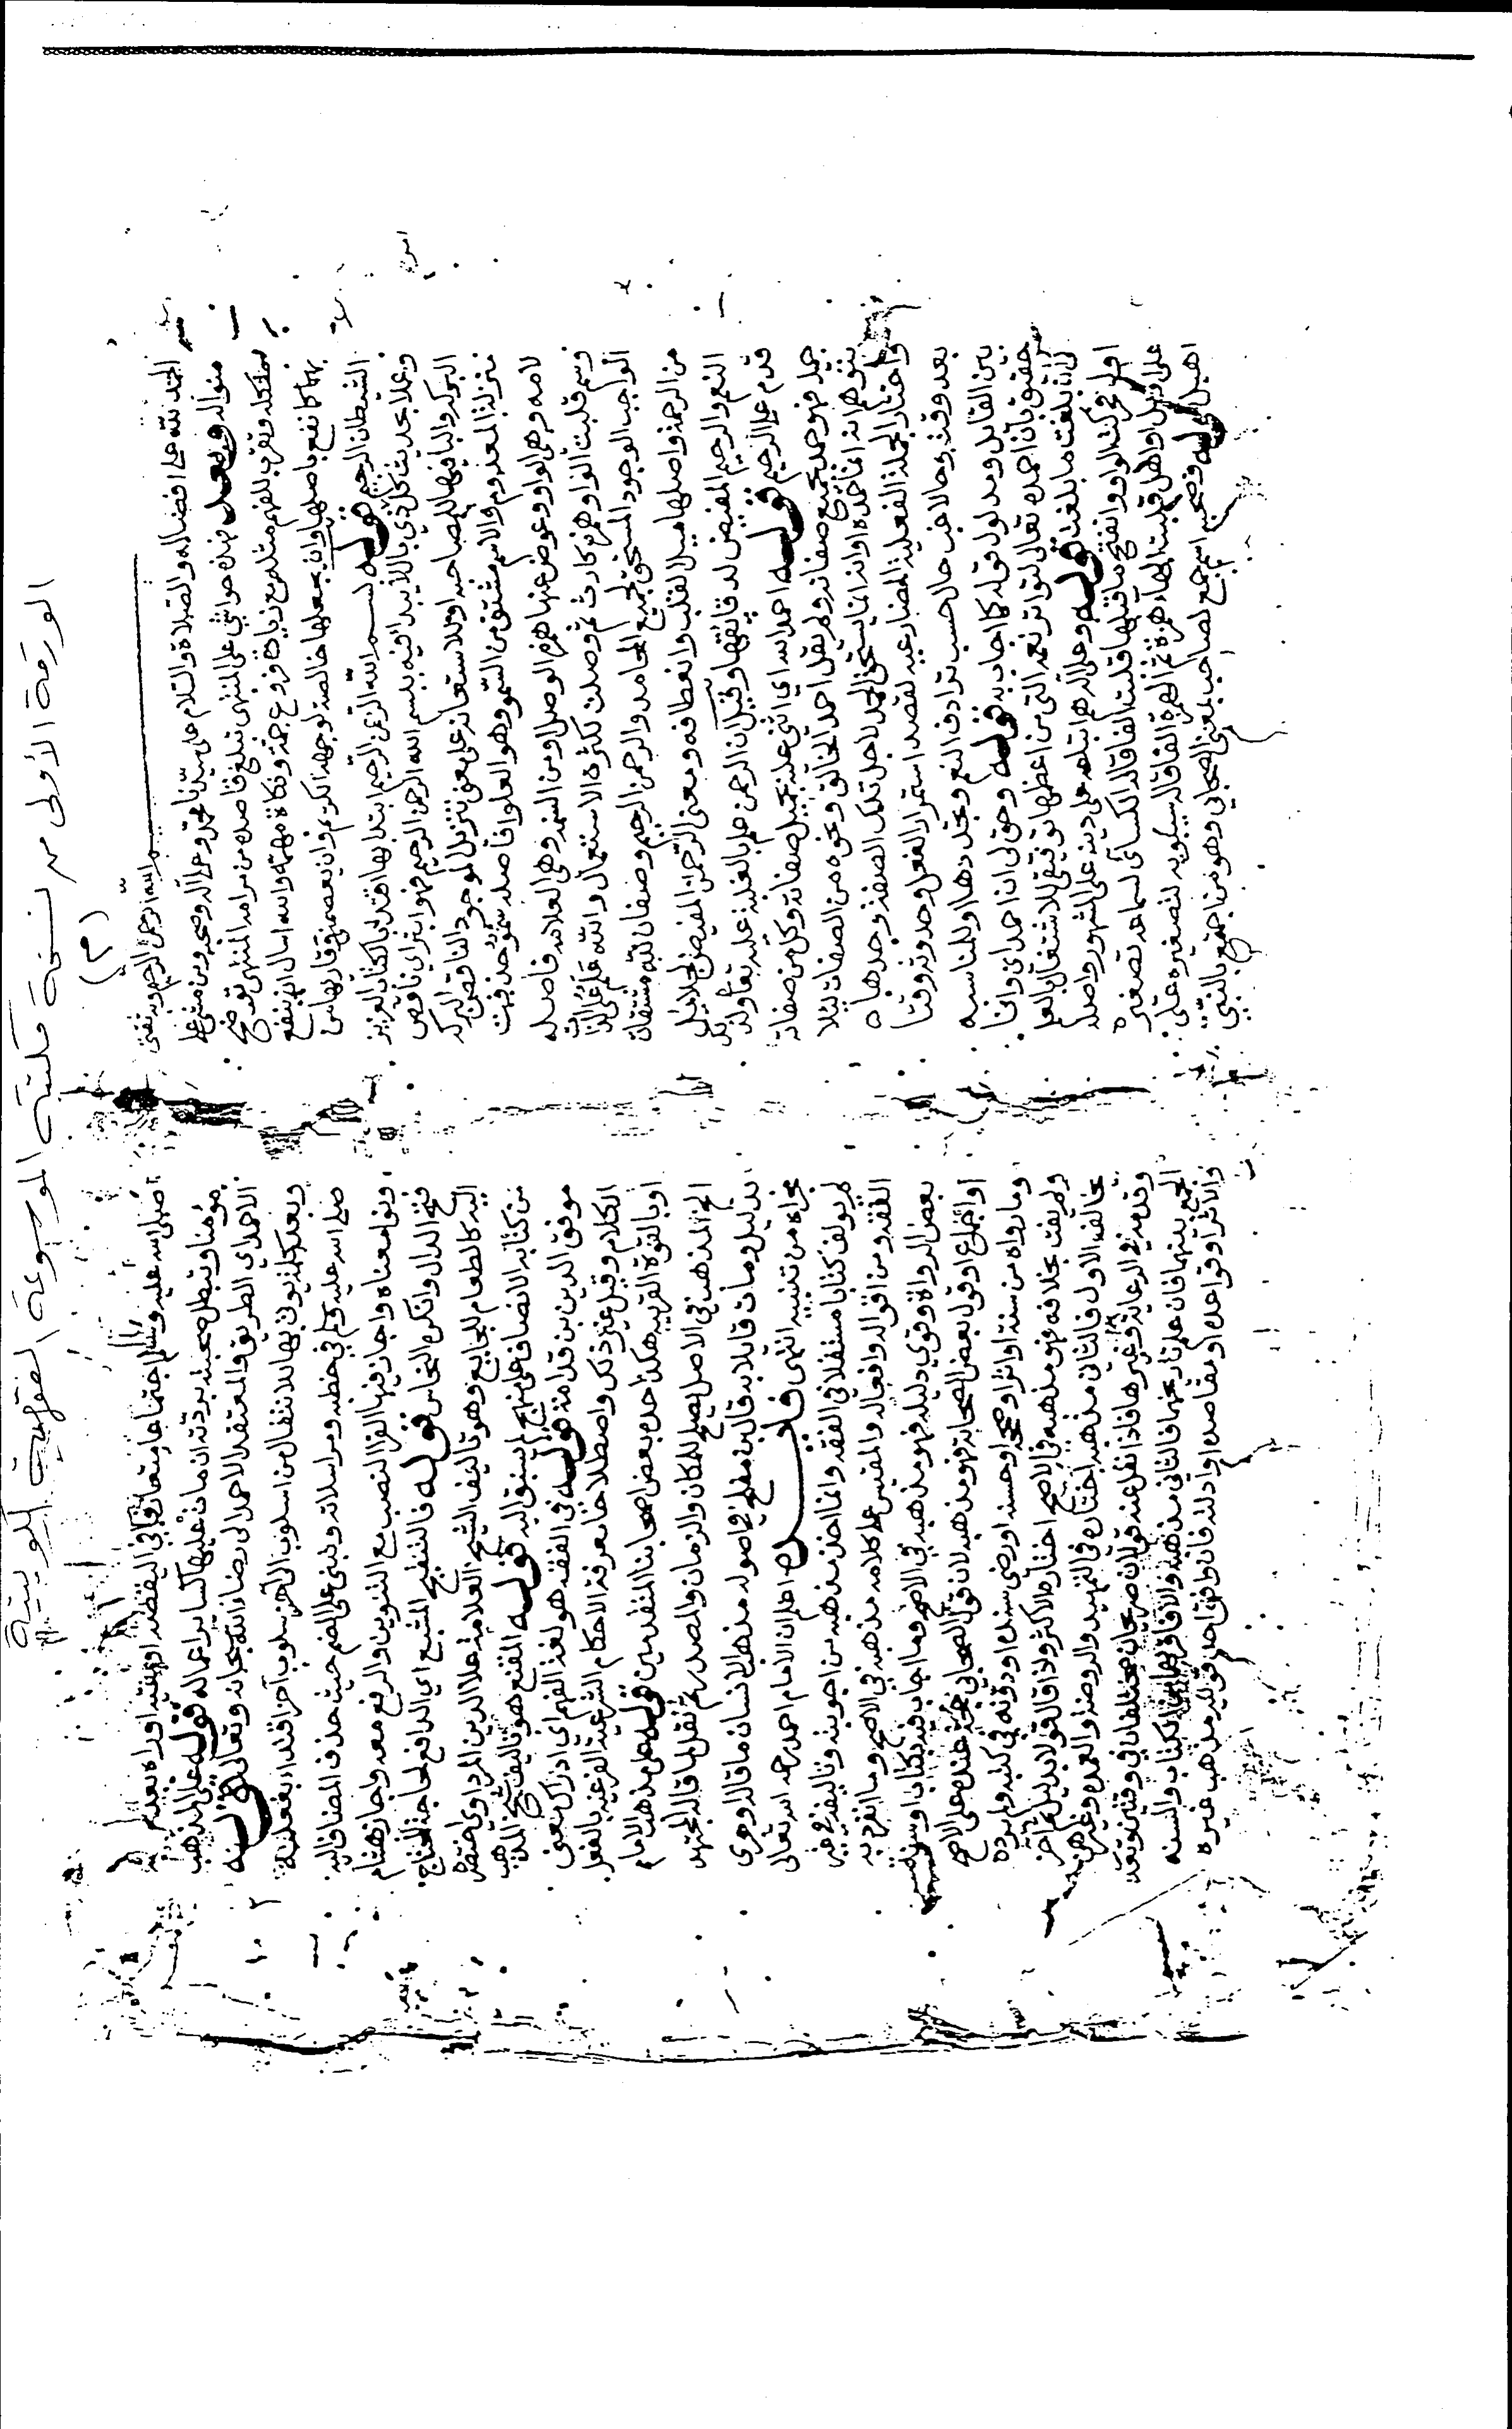 الورقة الأولى من نسخة مكتبة الموسوعة الفقهية الكويتية
(م)
بسم الله الرحمن الرحيم وبه ثقتي
الحمد لله على افضاله والصلاة والسلام على سيدنا محمد وعلى آله وصحبه ومن مشى على
منواله وبعد فهذه حواشي على المنتهى تبلغ قاصده من مرامه المنتهى توضح
مشكله وتقرب للفهم مثله مع زيادة فروع جمة ونكاة مهمة والله اسال ان ينفع
بها كما نفع باصلها وان يجعلها خالصة لوجهه الكريم وان يعصمني وقاريها من
الشيطان الرجيم قوله بسم الله الرحمن الرحيم ابتدا بها اقتدا بالكتاب العزيز
وعملا بحديث كل ذي بال لا يبدا فيه ببسم الله الرحمن الرحيم فهو ابتر اي ناقص
البركة والبا فيها للمصاحبة او للاستعانة على معنى تنزيل الموجود الناقص البركة
منزلة المعدوم والاسم مشتق من السمو وهو العلو فاصله سمو حذفت
لامه وهي الواو وعوض عنها همزة الوصل او من السمة وهي العلامة فاصله
وسم قلبت الواو همزة كارث ثم وصلت لكثرة الاستعمال والله علم على الذات
الواجب الوجود المستحق لجميع المحامد والرحمن الرحيم وصفان لله مشتقان
من الرحمة واصلها ميل القلب وانعطافه ومعنى الرحمن المفيض لجلائل
النعم والرحيم المفيض لدقائقها وقيل ان الرحمن علم بالغلبة عليه تعالى ولذلك
قدم على الرحيم قوله احمد الله اي اثني عليه بجميل صفاته وكل من صفاته
جميل فهو حمد بجميع صفاته ولم يقل احمد الخالق ونحوه من الصفات ليلا
يتوهم انه انما حمده او انه انما يستحق الحمد لاجل تلك الصفة وحدها
واختار الجملة الفعلية المضارعية لقصد استمرار الفعل وحدوثه وقتا
بعد وقت وحالا غب حال حسب ترادف النعم وتجددها او للمناسبة
بين القايل ومدلول قوله كما اجاب به قوله وحق لي ان احمد اي وانا
حقيق بان احمده تعالى لتواتر نعمه التي من اعظمها توفيقي للاشتغال بالعلم
لي ان بلغت ما بلغت قوله وعلى آله هم اتباعه على دينه على المشهور واصله
اول تحركت الواو وانفتح ما قبلها قلبت الفا قاله الكسائي لسماعه تصغيره
على اويل او اهل قلبت الهاء همزة ثم الهمزة الفا قاله سيبويه لتصغيره على
اهيل قوله وصحبه اسم جمع لصاحب بمعنى الصحابي وهو من اجتمع بالنبي
صلى الله عليه وسلم اجتماعا متعارفا في اليقظة
مؤمنا وتبطل صحبته بردته ان مات عليها كسائر اعماله قوله على المذهب
الاحمد اي الطريق والمعتقد الاحمد الى رضاء الله سبحانه وتعالى قوله
وبعد كلمة يوتى بها للانتقال من اسلوب الى اخر اقتداء بفعله
صلى الله عليه وسلم في خطبه ومراسلاته وتبنى على الضم حيث حذف المضاف اليه
ونوي معناه واجاز فيها الفرا النصب مع التنوين والرفع معه واجاز هشام
فتح الدال وانكره النحاس قوله فالتنقيح المشبع اي الدافع لحاجة المحتاج
اليه كالطعام للجايع وهو تاليف الشيخ العلامة علا الدين المرداوي اختصره
من كتابه الانصاف على منهج لم يسبق اليه قوله المقنع هو تاليف شيخ المذهب
موفق الدين بن قدامة قوله في الفقه هو لغة الفهم اي ادراك معنى
الكلام وقيل غير ذلك واصطلاحا معرفة الاحكام الشرعية الفرعية بالفعل
او بالقوة القريبة هكذا حده بعض اصحابنا المتقدمين قوله على مذهب الامام
الخ المذهب في الاصل يصلح للمكان والزمان والمصدر ثم نقل لما قاله المجتهد
بدليل ومات قائلا به قال ابن مفلح في اصوله مذهب الانسان ما قاله او جرى
مجراه من تنبيه انتهى فايدة اعلم ان الامام احمد رحمه الله تعالى
لم يولف كتابا مستقلا في الفقه وانما اخذ مذهبه من اجوبته وتاليفه في غير
الفقه ومن اقواله وافعاله والمقيس على كلامه مذهبه في الاصح وما انفرد به
بعض الرواة وقوي دليله فهو مذهبه في الاصح وما اجاب فيه بكتاب او سنة
او اجماع او قول بعض الصحابة فهو مذهبه لان قول الصحابي حجة عنده على الاصح
وما رواه من سنة او اثر او صححه او حسنه او رضي سنده او دونه في كتبه ولم يرده
ولم يفت بخلافه فهو مذهبه في الاصح اختاره الاكثر واذا قال قولا بدليل ثم اخر
يخالف الاول فالثاني مذهبه اختاره في التمهيد والروضة والعمدة وغيرها
وقدمه في الرعاية وغيرها فاذا نقل عنه قولان صريحان مختلفان في وقتين وتعذر
الجمع بينهما فان علم تاريخهما فالثاني مذهبه والا فاقربهما من الكتاب والسنة
والاثر او قواعده او مقاصده او ادلته فان وافق احد قوليه مذهب غيره